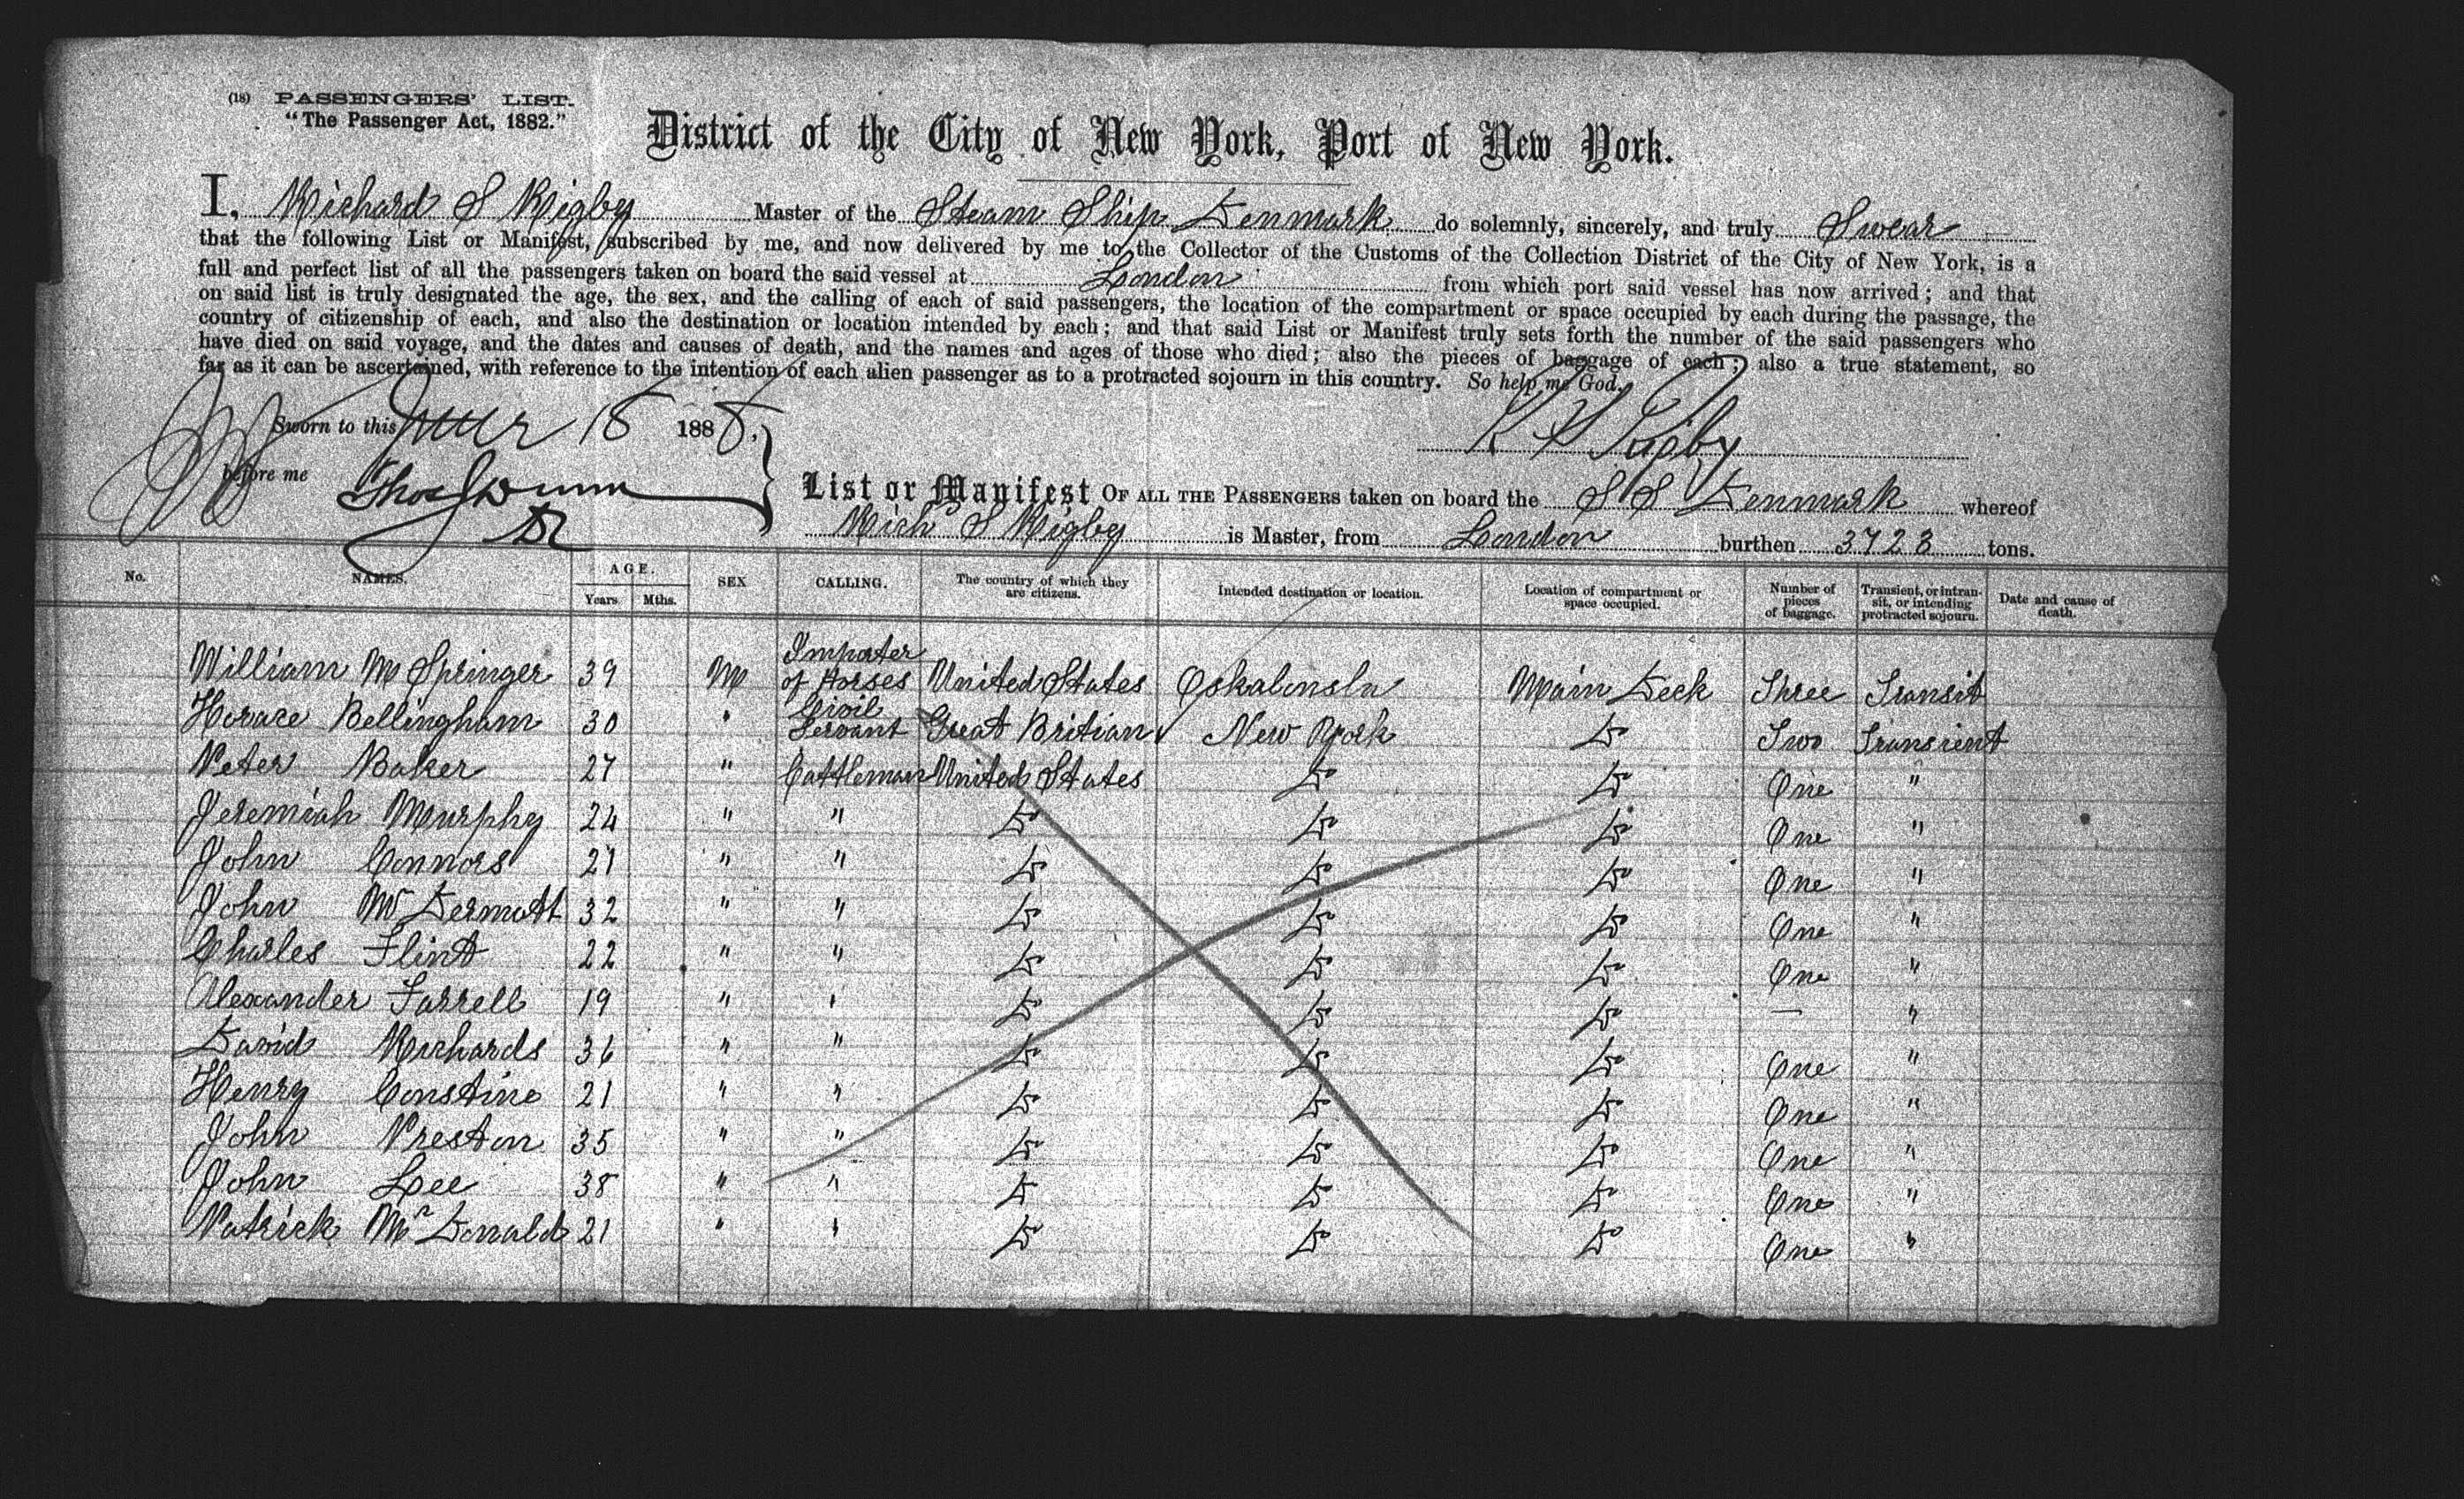 (18) PASSENGERS' LIST.
"The Passenger Act, 1882."
District of the City of New York, Port of New York.
I, Richard S Rigby Master of the Steam Ship Denmark do solemnly, sincerely, and truly Swear
that the following List or Manifest, subscribed by me, and now delivered by me to the Collector of the Customs of the Collection District of the City of New York, is a
full and perfect list of all the passengers taken on board the said vessel at London from which port said vessel has now arrived; and that
on said list is truly designated the age, the sex, and the calling of each of said passengers, the location of the compartment or space occupied by each during the passage, the
country of citizenship of each, and also the destination or location intended by each; and that said List or Manifest truly sets forth the number of the said passengers who
have died on said voyage, and the dates and causes of death, and the names and ages of those who died; also the pieces of baggage of each; also a true statement, so
far as it can be ascertained, with reference to the intention of each alien passenger as to a protracted sojourn in this country. So help me God.
Sworn to this June 18 1888. R S Rigby
before me Thos Dunn
List or Manifest OF ALL THE PASSENGERS taken on board the S S Denmark whereof
Richd S Rigby is Master, from London burthen 3723 tons.
No. NAMES. AGE. Years Mths. SEX CALLING. The country of which they are citizens. Intended destination or location. Location of compartment or space occupied. Number of pieces of baggage. Transient, or intransit, or intending protracted sojourn. Date and cause of death.
William M Springer 39 M Importer of Horses United States Oskaloosa Main Deck Three Transit
Horace Bellingham 30 " Civil Servant Great Britian New York Do Two Transient
Peter Baker 27 " Cattleman United States Do Do One "
Jeremiah Murphy 24 " " Do Do Do One "
John Connors 21 " " Do Do Do One "
John McDermott 32 " " Do Do Do One "
Charles Flint 22 " " Do Do Do One "
Alexander Farrell 19 " " Do Do Do — "
David Richards 36 " " Do Do Do One "
Henry Constine 21 " " Do Do Do One "
John Preston 35 " " Do Do Do One "
John Lee 38 " " Do Do Do One "
Patrick McDonald 21 " " Do Do Do One "